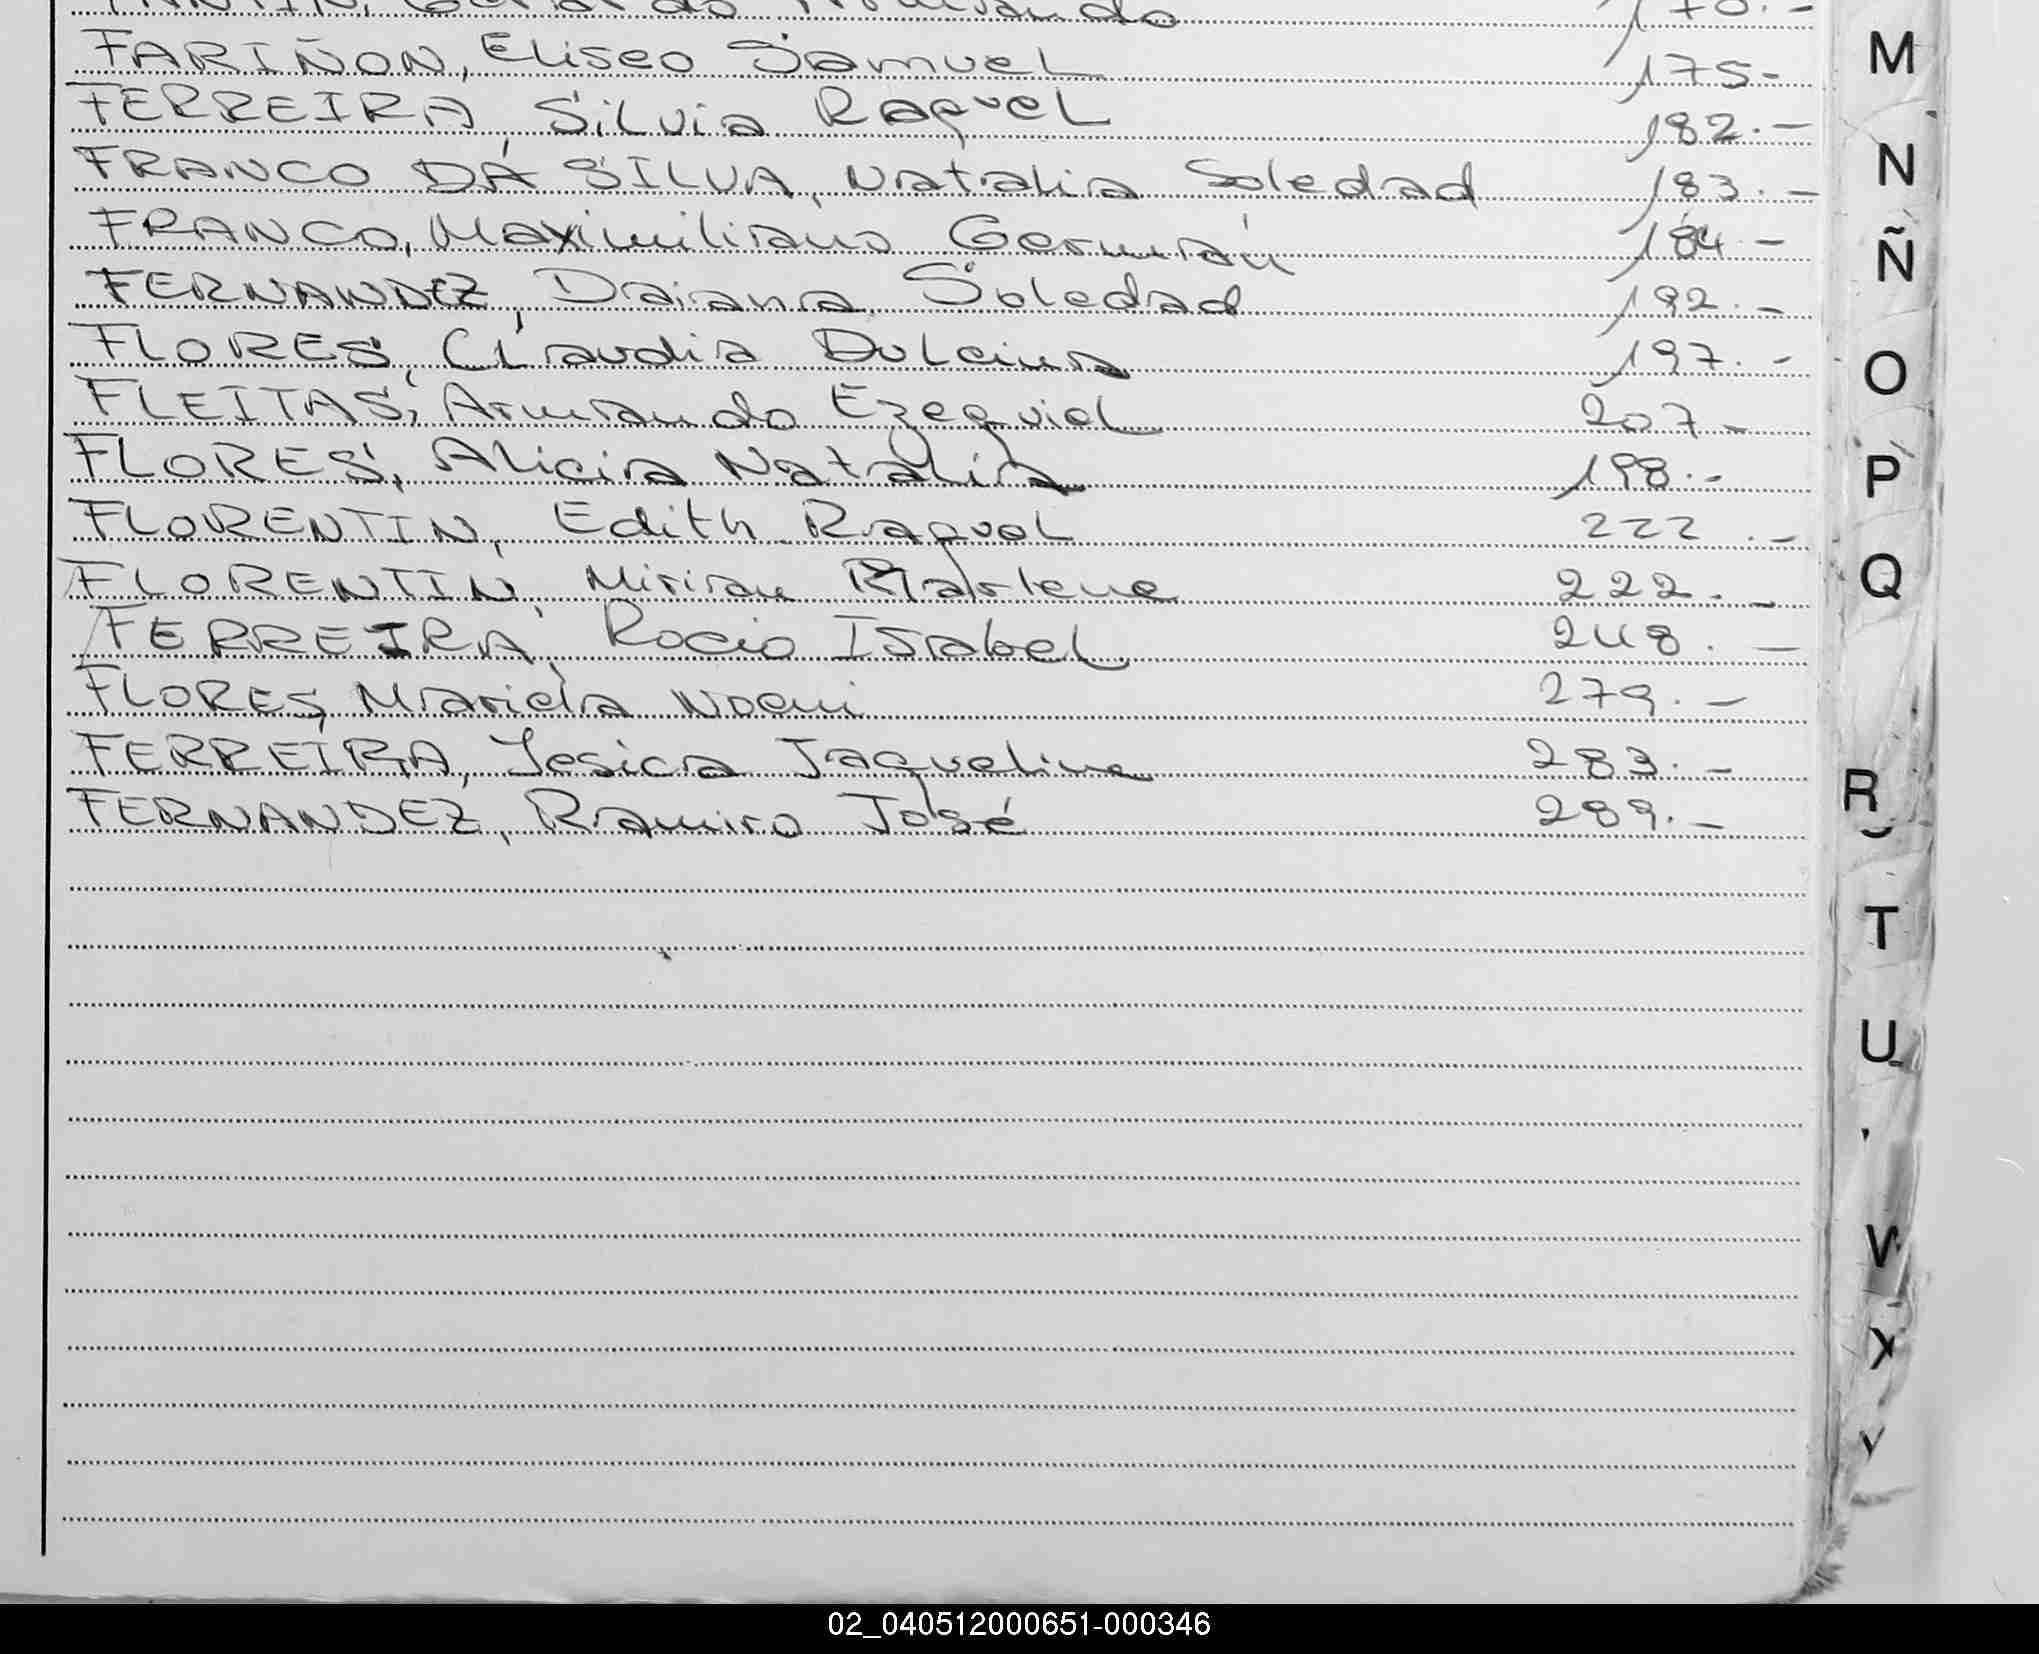 FARIÑON, Eliseo Samuel 175-
FERREIRA, Silvia Raquel 182.-
FRANCO DA SILVA, Natalia Soledad 183.-
FRANCO, Maximiliano Germán 184.-
FERNANDEZ, Daiana Soledad 192.-
FLORES, Claudia Dulcina 197.-
FLEITAS, Armando Ezequiel 207-
FLORES, Alicia Natalia 198.-
FLORENTIN, Edith Raquel 222.-
FLORENTIN, Mirian Marlene 222.-
FERREIRA, Rocio Isabel 248.-
FLORES, Mariela Noemi 279.-
FERREIRA, Yesica Jaqueline 283.-
FERNANDEZ, Ramiro José 289.-
M
N
Ñ
O
P
Q
R
T
U
X
Y
02_040512000651-000346